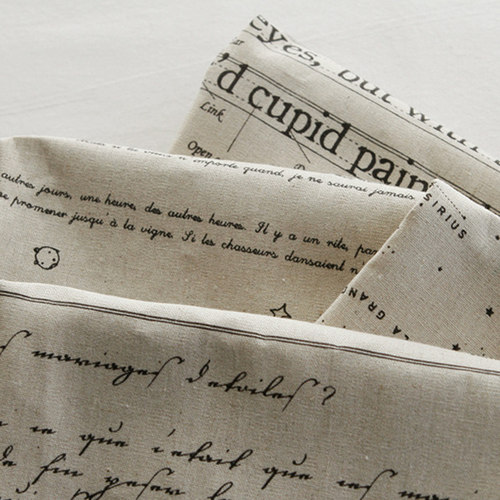 eyes, but with
'd cupid pain
Link
Open
n'importe quand, je ne saurai jamais
autres jours, une heure, des autres heures. Il y a un rite, par
se promener jusqu'à la vigne. Si les chasseurs dansaient n
SIRIUS
LA GRAN
s mariages d'étoiles ?
ce que c'était que ces